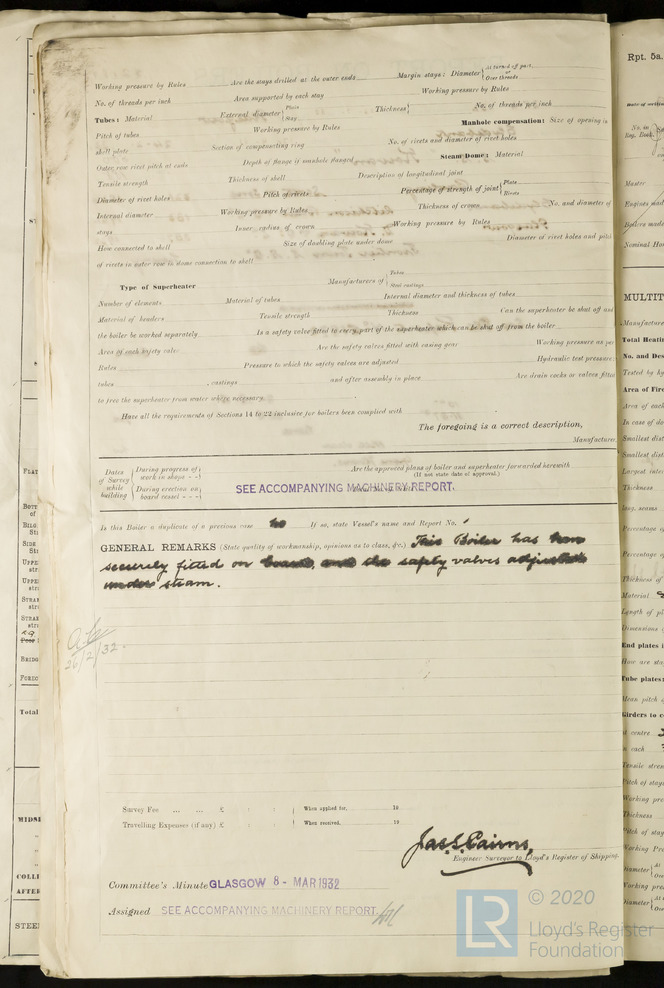 Working pressure by Rules Are the stays drilled at the outer ends Margin stays: Diameter { At turned off part, or Over threads
No. of threads per inch Area supported by each stay Working pressure by Rules
Tubes: Material External diameter { Plain Stay Thickness { No. of threads per inch
Pitch of tubes Working pressure by Rules Manhole compensation: Size of opening in
shell plate Section of compensating ring No. of rivets and diameter of rivet holes
Outer row rivet pitch at ends Depth of flange if manhole flanged Steam Dome: Material
Tensile strength Thickness of shell Description of longitudinal joint
Diameter of rivet holes Pitch of rivets Percentage of strength of joint { Plate Rivets
Internal diameter Working pressure by Rules Thickness of crown No. and diameter of
stays Inner radius of crown Working pressure by Rules
How connected to shell Size of doubling plate under dome Diameter of rivet holes and pitch
of rivets in outer row in dome connection to shell
Type of Superheater Manufacturers of { Tubes Steel castings
Number of elements Material of tubes Internal diameter and thickness of tubes
Material of headers Tensile strength Thickness Can the superheater be shut off and
the boiler be worked separately Is a safety valve fitted to every part of the superheater which can be shut off from the boiler
Area of each safety valve Are the safety valves fitted with easing gear Working pressure as per
Rules Pressure to which the safety valves are adjusted Hydraulic test pressure:
tubes , castings and after assembly in place Are drain cocks or valves fitted
to free the superheater from water where necessary.
Have all the requirements of Sections 14 to 22 inclusive for boilers been complied with
The foregoing is a correct description,
Manufacturer.
Dates of Survey while building { During progress of work in shops - - } Are the approved plans of boiler and superheater forwarded herewith (If not state date of approval.)
{ During erection on board vessel - - - } SEE ACCOMPANYING MACHINERY REPORT.
Is this Boiler a duplicate of a previous case no If so, state Vessel's name and Report No.
GENERAL REMARKS (State quality of workmanship, opinions as to class, &c.) This Boiler has been
securely fitted on board, and the safety valves adjusted
under steam.
26/2/32.
Survey Fee ... ... £ : : When applied for, 19
Travelling Expenses (if any) £ : : When received, 19
Jas. S. Cairns,
Engineer Surveyor to Lloyd's Register of Shipping.
Committee's Minute GLASGOW 8 - MAR 1932
Assigned SEE ACCOMPANYING MACHINERY REPORT.
© 2020
LR Lloyd's Register
Foundation
Rpt. 5a.
No. in
Reg. Book
Master
Engines made
Boilers made
Nominal Ho
MULTIT
Manufacture
Total Heati
No. and Des
Tested by hy
Area of Fire
Area of each
In case of do
Smallest dist
Smallest dist
Largest inter
Thickness
long. seams
Percentage of
Percentage of
Thickness of
Material
Length of pl
Dimensions o
End plates i
How are sta
Tube plates:
Mean pitch o
Girders to c
at centre
in each
Tensile stren
Pitch of stays
Working pre
Thickness
Pitch of stay
Working Pre
Diameter
Working pre
Diameter
FLAT
SIDE
UPPE
UPPE
STRAK
STRAK
BRIDG
FOREC
Total
MIDSH
COLLI
AFTER
STEE